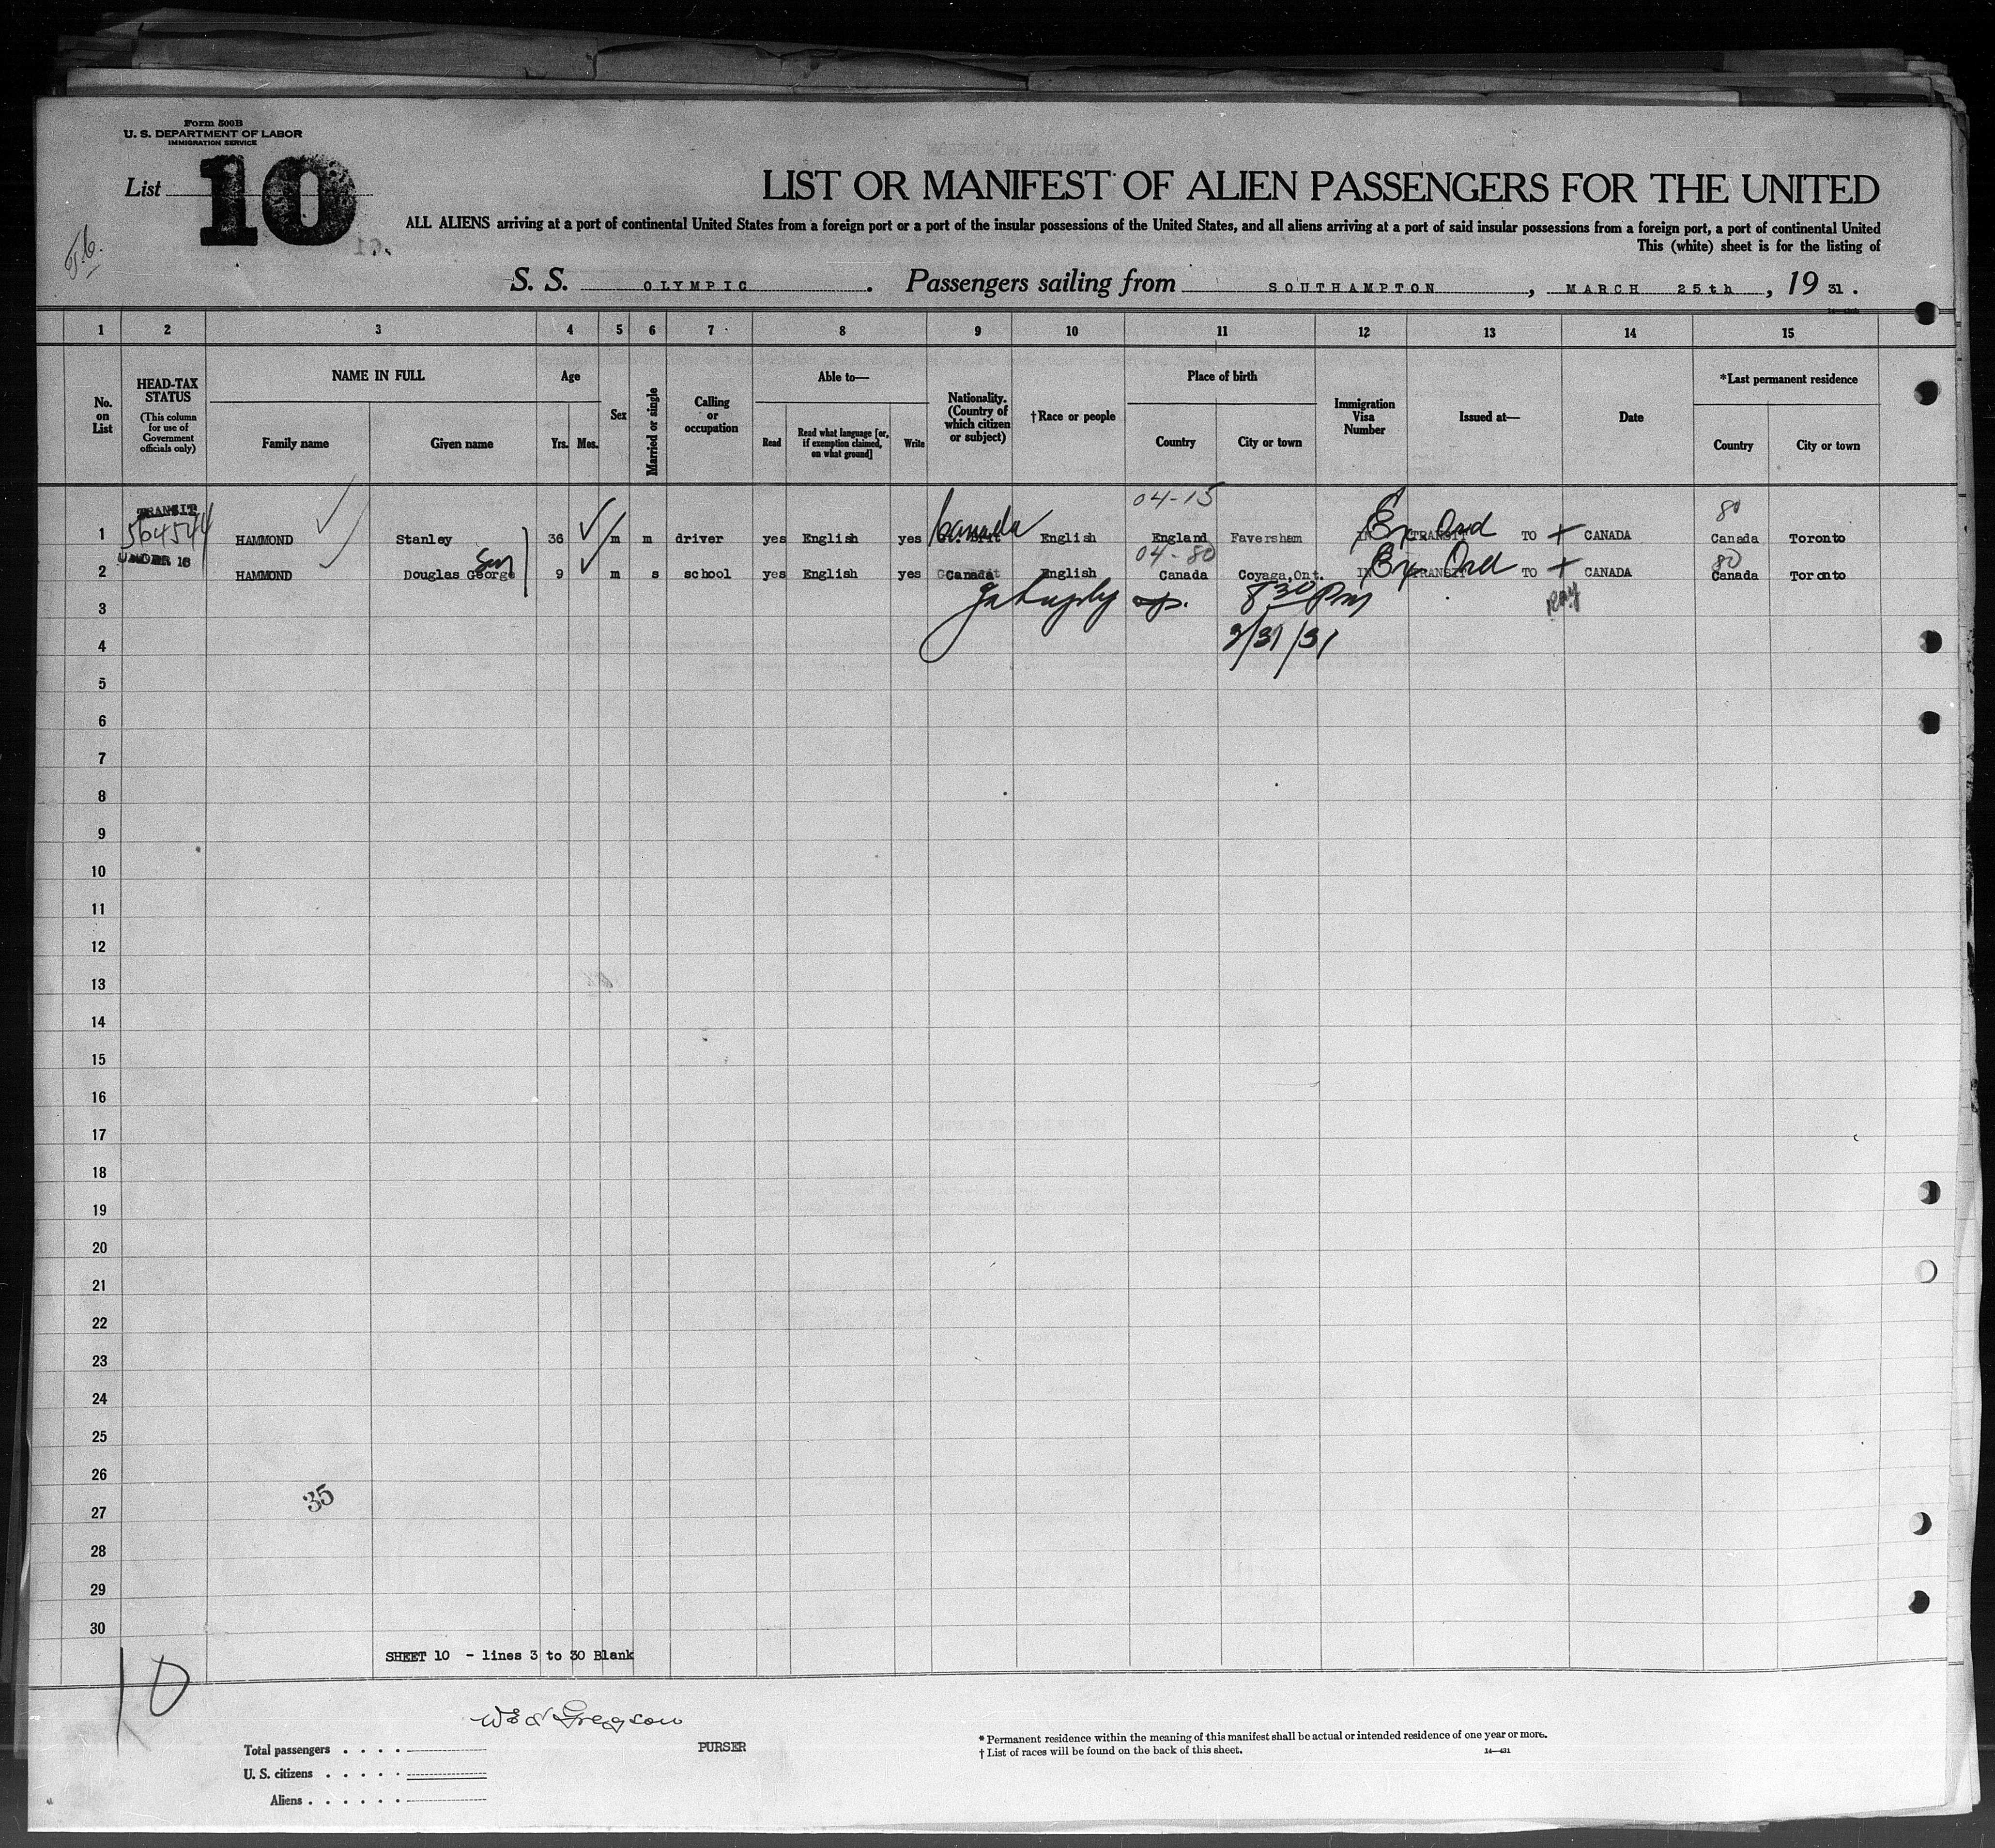 Form 500B
U. S. DEPARTMENT OF LABOR
IMMIGRATION SERVICE
List 10
LIST OR MANIFEST OF ALIEN PASSENGERS FOR THE UNITED
ALL ALIENS arriving at a port of continental United States from a foreign port or a port of the insular possessions of the United States, and all aliens arriving at a port of said insular possessions from a foreign port, a port of continental United
This (white) sheet is for the listing of
S. S. OLYMPIC. Passengers sailing from SOUTHAMPTON, MARCH 25th, 19 31.
1 2 3 4 5 6 7 8 9 10 11 12 13 14 15
No. on List
HEAD-TAX STATUS
(This column for use of Government officials only)
NAME IN FULL
Family name Given name
Age
Yrs. Mos.
Sex
Married or single
Calling or occupation
Able to—
Read Read what language [or, if exemption claimed, on what ground] Write
Nationality. (Country of which citizen or subject)
†Race or people
Place of birth
Country City or town
Immigration Visa Number
Issued at—
Date
*Last permanent residence
Country City or town
TRANSIT 04-15 80
1 564544 HAMMOND Stanley 36 m m driver yes English yes Canada English England Faversham IN TRANSIT Ex Ord TO CANADA Canada Toronto
UNDER 16 Son 04-80 80
2 HAMMOND Douglas George 9 m s school yes English yes Canada English Canada Coyaga,Ont. IN TRANSIT Ex Ord TO CANADA Canada Toronto
3 8 30 Pm
4 3/31/31
5
6
7
8
9
10
11
12
13
14
15
16
17
18
19
20
21
22
23
24
25
26
27 35
28
29
30
SHEET 10 - lines 3 to 30 Blank
10
Gregson
PURSER
Total passengers . . . .
U. S. citizens . . . . .
Aliens . . . . . .
* Permanent residence within the meaning of this manifest shall be actual or intended residence of one year or more.
† List of races will be found on the back of this sheet.
14—431